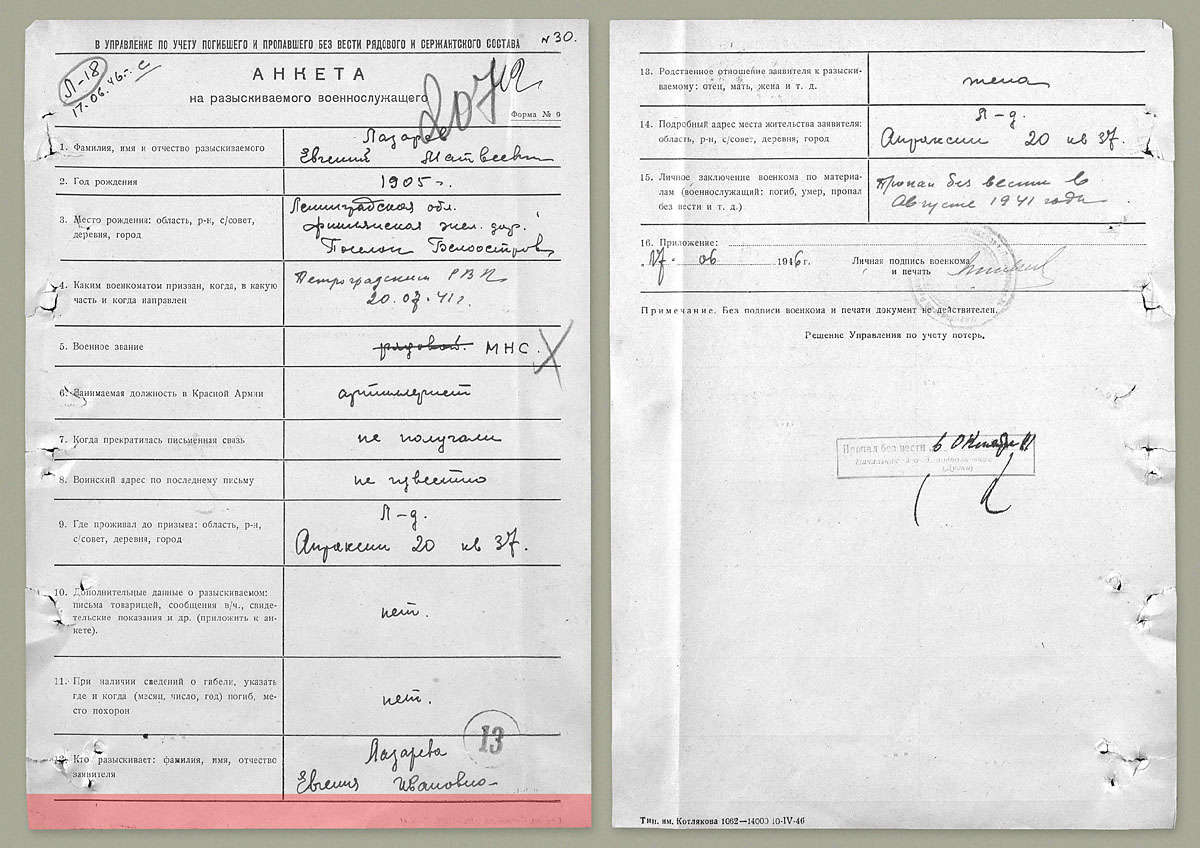 В УПРАВЛЕНИЕ ПО УЧЕТУ ПОГИБШЕГО И ПРОПАВШЕГО БЕЗ ВЕСТИ РЯДОВОГО И СЕРЖАНТСКОГО СОСТАВА
N 30.
Л-18
17.06.46г.
АНКЕТА
на разыскиваемого военнослужащего
Форма № 9
1. Фамилия, имя и отчество разыскиваемого
Лазарев
Евгений Матвеевич
2. Год рождения
1905 г.
3. Место рождения: область, р-н, с/совет,
деревня, город
Ленинградская обл.
жел. дор.
Поселок Белоостров
4. Каким военкоматом призван, когда, в какую
часть и когда направлен
Петроградским РВК
20.07.41г.
5. Военное звание
рядовой. МНС.
6. Занимаемая должность в Красной Армии
артиллерист
7. Когда прекратилась письменная связь
не получали
8. Воинский адрес по последнему письму
не известно
9. Где проживал до призыва: область, р-н,
с/совет, деревня, город
Л-д.
Апраксин 20 кв 37.
10. Дополнительные данные о разыскиваемом:
письма товарищей, сообщения в/ч., свиде-
тельские показания и др. (приложить к ан-
кете).
нет.
11. При наличии сведений о гибели, указать
где и когда (месяц, число, год) погиб, ме-
сто похорон
нет.
13
12. Кто разыскивает: фамилия, имя, отчество
заявителя
Лазарева
Евгения Ивановна
13. Родственное отношение заявителя к разыски-
ваемому: отец, мать, жена и т. д.
жена
14. Подробный адрес места жительства заявителя:
область, р-н, с/совет, деревня, город
Л-д.
Апраксин 20 кв 37.
15. Личное заключение военкома по материа-
лам (военнослужащий: погиб, умер, пропал
без вести и т. д.)
Пропал без вести в
Августе 1941 года
16. Приложение:
17. 06 1946 г.
Личная подпись военкома
и печать
Примечание. Без подписи военкома и печати документ не действителен.
Решение Управления по учету потерь.
Пропал без вести в Октябре 41
Тип. им. Котлякова 1062—14000 10-IV-46